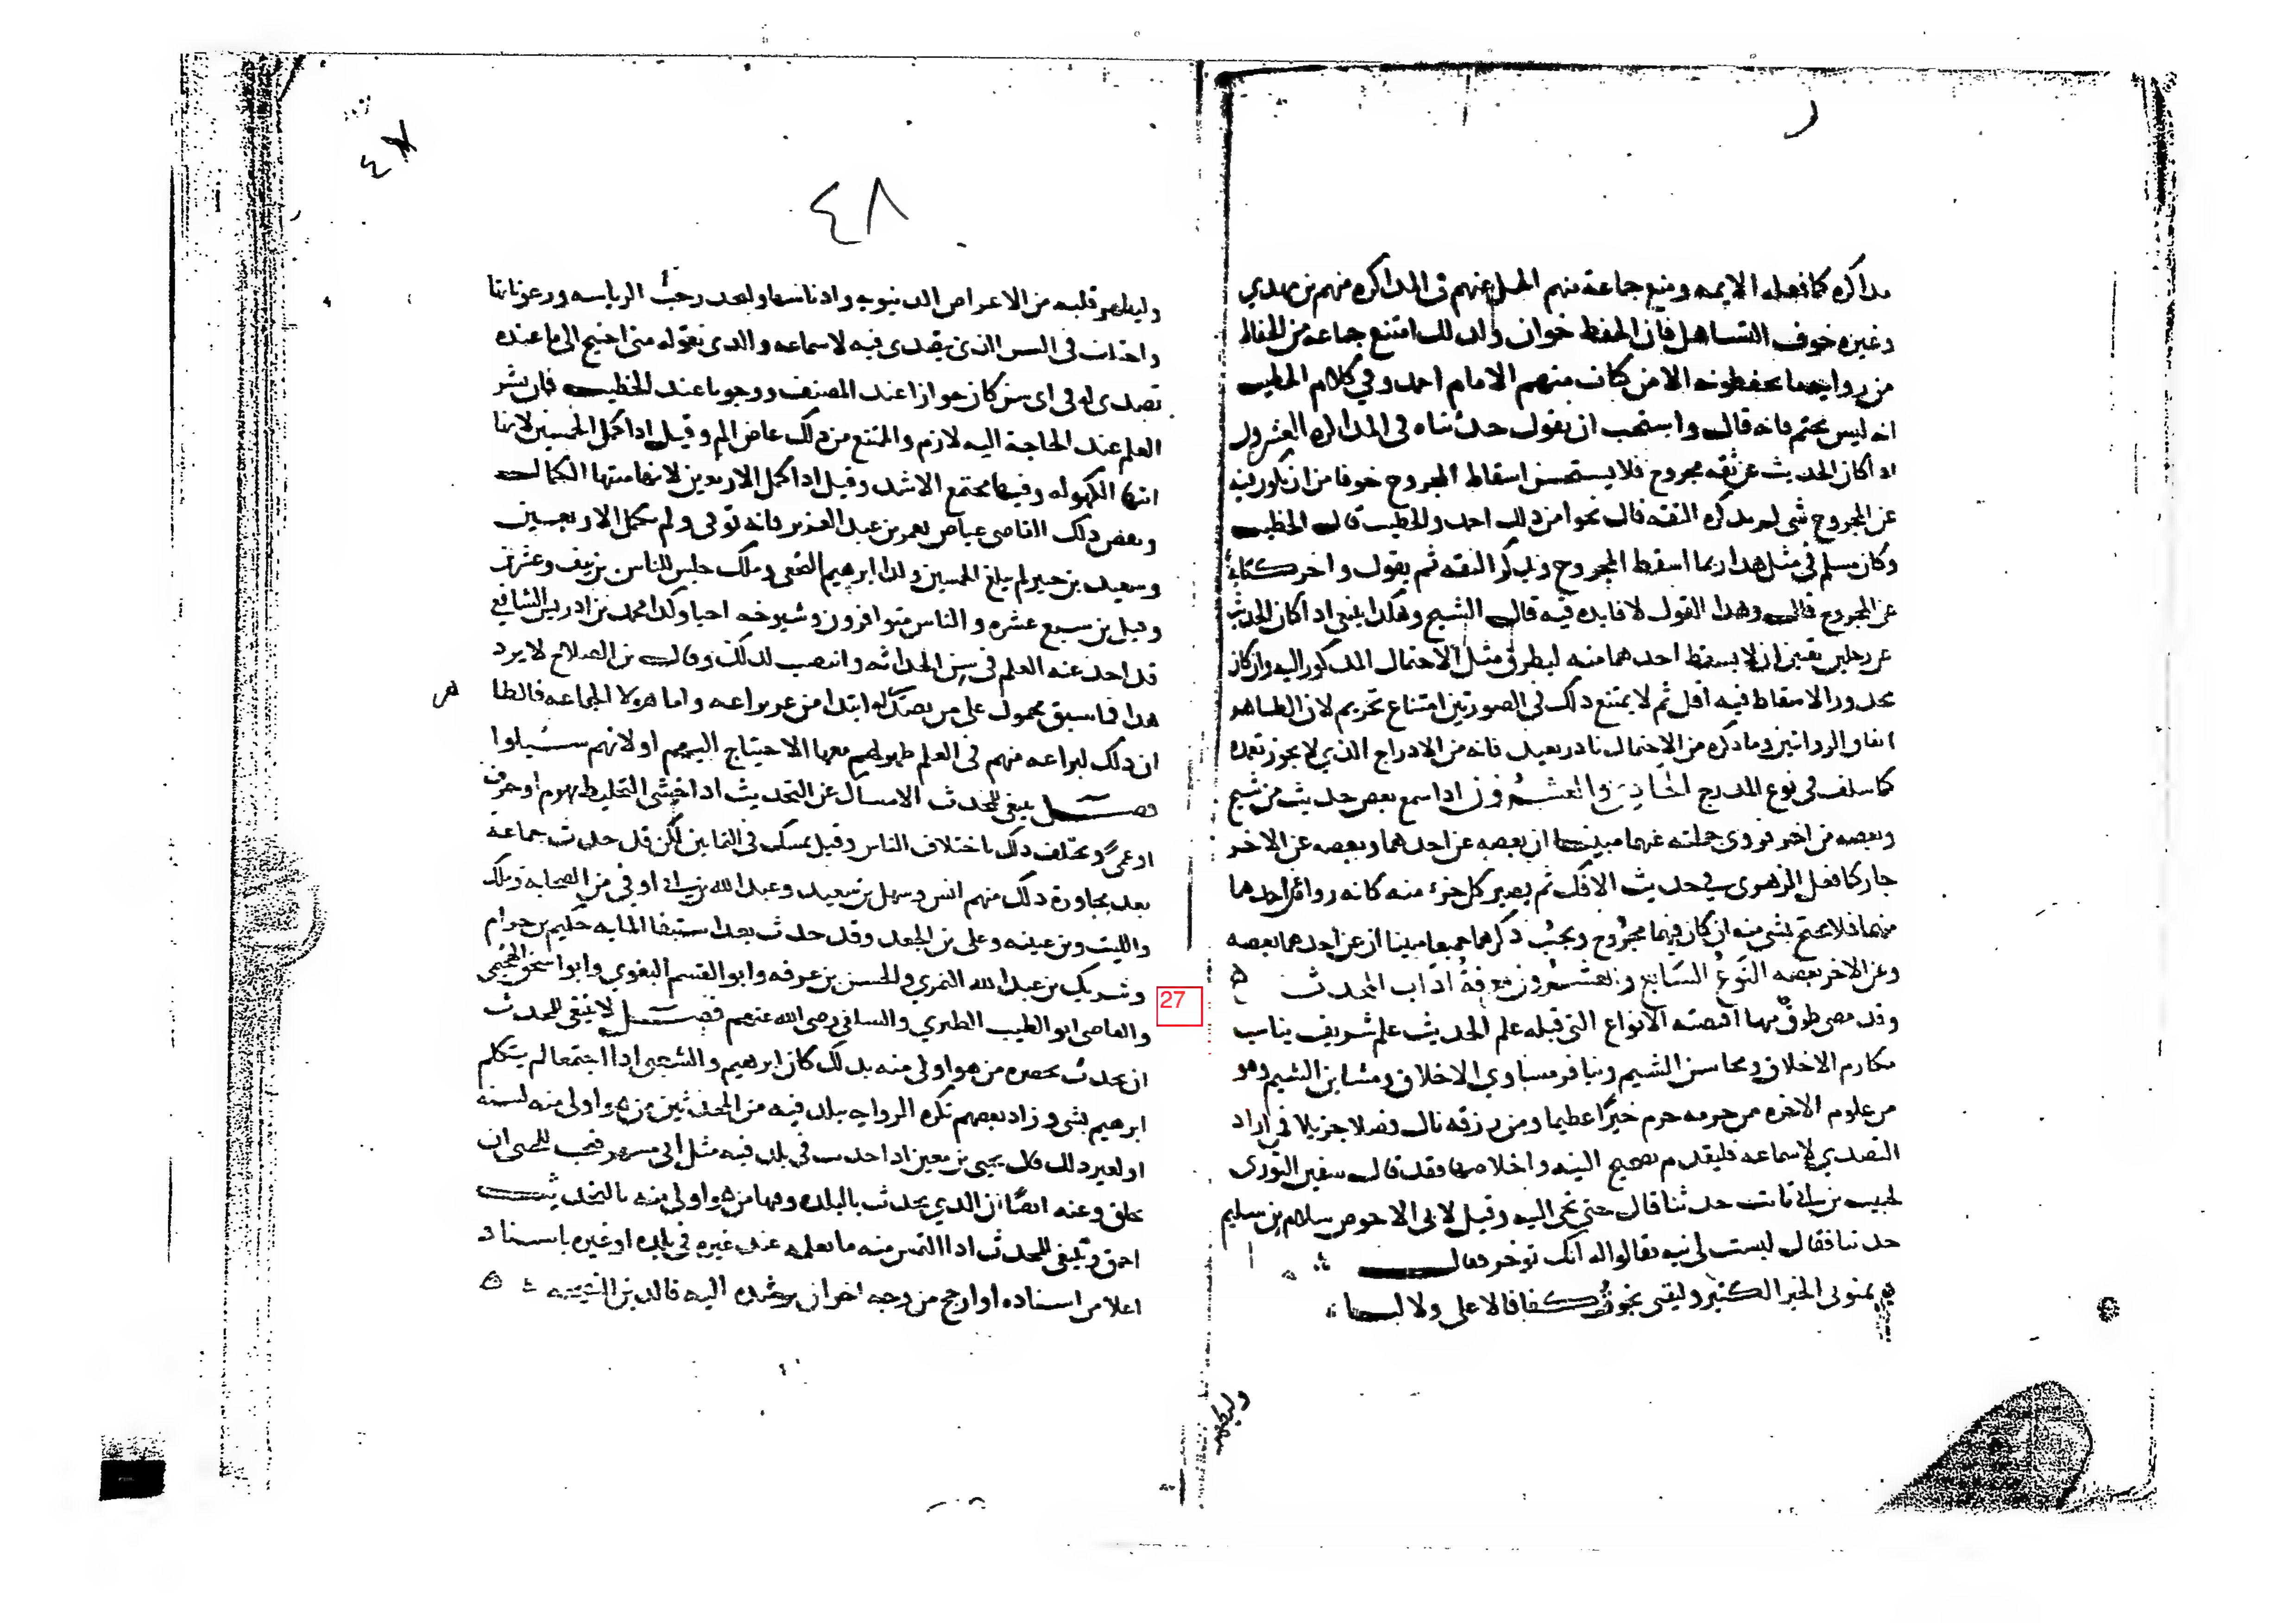 مذاكرة كما فعله الايمه ومنع جماعة منهم الحمل عنهم في المذاكره منهم بن مهدي
وغيره خوف التساهل فان الحفظ خوان ولذلك امتنع جماعة من الحفاظ
من رواية ما يحفظونه الا من كتاب منهم الامام احمد وفي كلام الخطيب
انه ليس بحتم فانه قال واستحب ان يقول حدثناه في المذاكره العشرون
اذا كان الحديث عن ثقه ومجروح فلا يستحسن اسقاط المجروح خوفا من ان يكون فيه
عن المجروح شي لم يذكره الثقه قال نحوا من ذلك احمد والخطيب قال الخطيب
وكان مسلم في مثل هذا ربما اسقط المجروح ويذكر الثقه ثم يقول واخر كناية
عن المجروح قال وهذا القول لا فايده فيه قال الشيخ وهكذا ينبغي اذا كان الحديث
عن رجلين ثقتين ان لا يسقط احدهما منه لتطرق مثل الاحتمال المذكور اليه وان كان
محذور الاسقاط فيه اقل ثم لا يمتنع ذلك في الصورتين امتناع تحريم لان الظاهر
اتفاق الروايتين وما ذكره من الاحتمال نادر بعيد فانه من الادراج الذي لا يجوز تعمده
كما سلف في نوع المدرج الحادي والعشرون اذا سمع بعض حديث من شيخ
وبعضه من اخر فروى جملته عنهما مبينا ان بعضه عن احدهما وبعضه عن الاخر
جاز كما فعل الزهري في حديث الافك ثم يصير كل جزء منه كانه رواه عن احدهما
مبهما فلا يحتج بشي منه ان كان فيهما مجروح ويجب ذكرهما جميعا مبينا ان عن احدهما بعضه
وعن الاخر بعضه النوع السابع والعشرون معرفة اداب المحدث
وقد مضى طرف منها اقتضته الانواع التي قبله علم الحديث علم شريف يناسب
مكارم الاخلاق ومحاسن الشيم وينافر مساوي الاخلاق ومشاين الشيم وهو
من علوم الاخره من حرمه حرم خيرا عظيما ومن رزقه نال فضلا جزيلا فمن اراد
التصدي لاسماعه فليقدم تصحيح النيه واخلاصها فقد قال سفين الثوري
لحبيب بن ابي ثابت حدثنا قال حتى تجي النيه وقيل لابي الاحوص سلام بن سليم
حدثنا فقال ليست لي نيه فقالوا له انك توجر فقال
يمنوني الخير الكثير وليتني نجوت كفافا لا علي ولا ليا
وليطهر
٤٨
وليطهر قلبه من الاعراض الدنيويه وادناسها وليحذر حب الرياسه ورعوناتها
واختلف في السن الذي يتصدى فيه لاسماعه والذي نقوله متى احتيج الى ما عنده
تصدى له في اي سن كان جوازا عند المصنف ووجوبا عند الخطيب فان نشر
العلم عند الحاجة اليه لازم والممتنع من ذلك عاص اثم وقيل اذا كمل الخمسين لانها
انتها الكهوله وفيها مجتمع الاشد وقيل اذا كمل الاربعين لانها منتها الكمال
ونقض ذلك القاضي عياض بعمر بن عبد العزيز فانه توفي ولم يكمل الاربعين
وسعيد بن جبير لم يبلغ الخمسين وكذا ابرهيم النخعي ومالك جلس للناس بن نيف وعشرين
وقيل بن سبع عشره والناس متوافرون وشيوخه احيا وكذا محمد بن ادريس الشافعي
قد اخذ عنه العلم في سن الحداثه وانتصب لذلك وقال بن الصلاح لا يرد
هذا فما سبق محمول على من يتصدى له ابتدا من غير براعه واما هولا الجماعه فالظا
هر
ان ذلك لبراعه منهم في العلم ظهر لهم معها الاحتياج اليهم او لانهم سئلوا
فصل ينبغي للمحدث الامساك عن التحديث اذا خشي التخليط بهرم او خرف
او عمى ويختلف ذلك باختلاف الناس وقيل يمسك في الثمانين لكن قد حدث جماعة
بعد مجاوزة ذلك منهم انس وسهل بن سعيد وعبد الله بن ابي اوفى من الصحابة ومالك
والليث وبن عيينه وعلي بن الجعد وقد حدث بعد استيفا المايه حكيم بن حزام
وشريك بن عبد الله النمري والحسن بن عرفه وابو القسم البغوي وابو اسحق الهجيمي
والقاضي ابو الطيب الطبري والسلفي رضي الله عنهم فصل لا ينبغي للمحدث
ان يحدث بحضره من هو اولى منه بذلك كان ابرهيم والشعبي اذا اجتمعا لم يتكلم
ابرهيم بشي وزاد بعضهم تكره الروايه ببلد فيه من المحدثين من هو اولى منه لسنه
او لغير ذلك قال يحيى بن معين اذا حدثت في بلد فيه مثل ابي مسهر فيجب للحيتي ان
تحلق وعنه ايضا ان الذي يحدث بالبلده وفيها من هو اولى منه بالتحديث
احمق وينبغي للمحدث اذا التمس منه ما يعلمه عند غيره في بلده او غيره باسناد
اعلا من اسناده او ارجح من وجه اخر ان يرشده اليه فالدين النصيحه
27